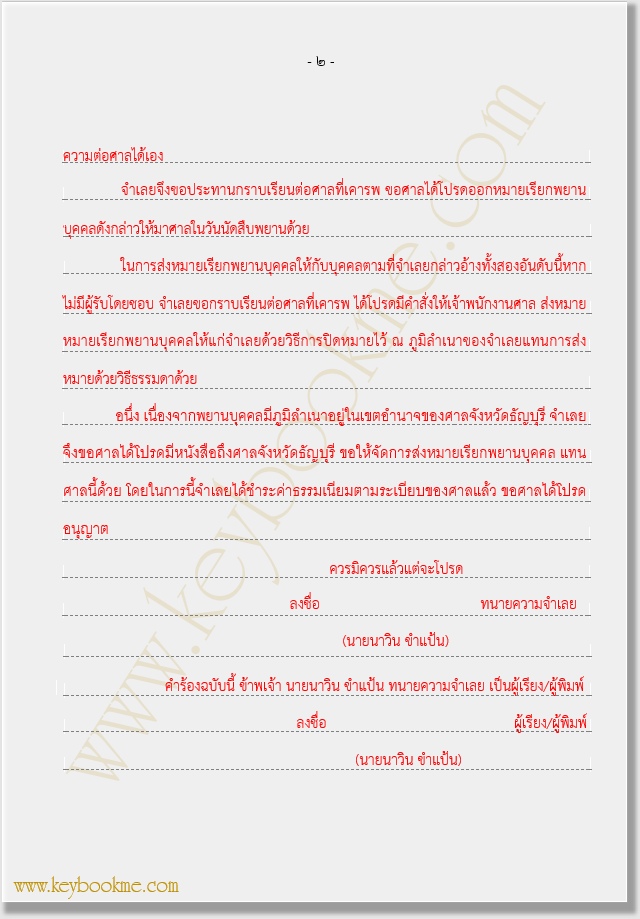 - ๒ -
ความต่อศาลได้เอง
จำเลยจึงขอประทานกราบเรียนต่อศาลที่เคารพ ขอศาลได้โปรดออกหมายเรียกพยาน
บุคคลดังกล่าวให้มาศาลในวันนัดสืบพยานด้วย
ในการส่งหมายเรียกพยานบุคคลให้กับบุคคลตามที่จำเลยกล่าวอ้างทั้งสองอันดับนี้หาก
ไม่มีผู้รับโดยชอบ จำเลยขอกราบเรียนต่อศาลที่เคารพ ได้โปรดมีคำสั่งให้เจ้าพนักงานศาล ส่งหมาย
หมายเรียกพยานบุคคลให้แก่จำเลยด้วยวิธีการปิดหมายไว้ ณ ภูมิลำเนาของจำเลยแทนการส่ง
หมายด้วยวิธีธรรมดาด้วย
อนึ่ง เนื่องจากพยานบุคคลมีภูมิลำเนาอยู่ในเขตอำนาจของศาลจังหวัดธัญบุรี จำเลย
จึงขอศาลได้โปรดมีหนังสือถึงศาลจังหวัดธัญบุรี ขอให้จัดการส่งหมายเรียกพยานบุคคล แทน
ศาลนี้ด้วย โดยในการนี้จำเลยได้ชำระค่าธรรมเนียมตามระเบียบของศาลแล้ว ขอศาลได้โปรด
อนุญาต
ควรมิควรแล้วแต่จะโปรด
ลงชื่อ ทนายความจำเลย
(นายนาวิน ขำแป้น)
คำร้องฉบับนี้ ข้าพเจ้า นายนาวิน ขำแป้น ทนายความจำเลย เป็นผู้เรียง/ผู้พิมพ์
ลงชื่อ ผู้เรียง/ผู้พิมพ์
(นายนาวิน ขำแป้น)
www.keybookme.com
www.keybookme.com